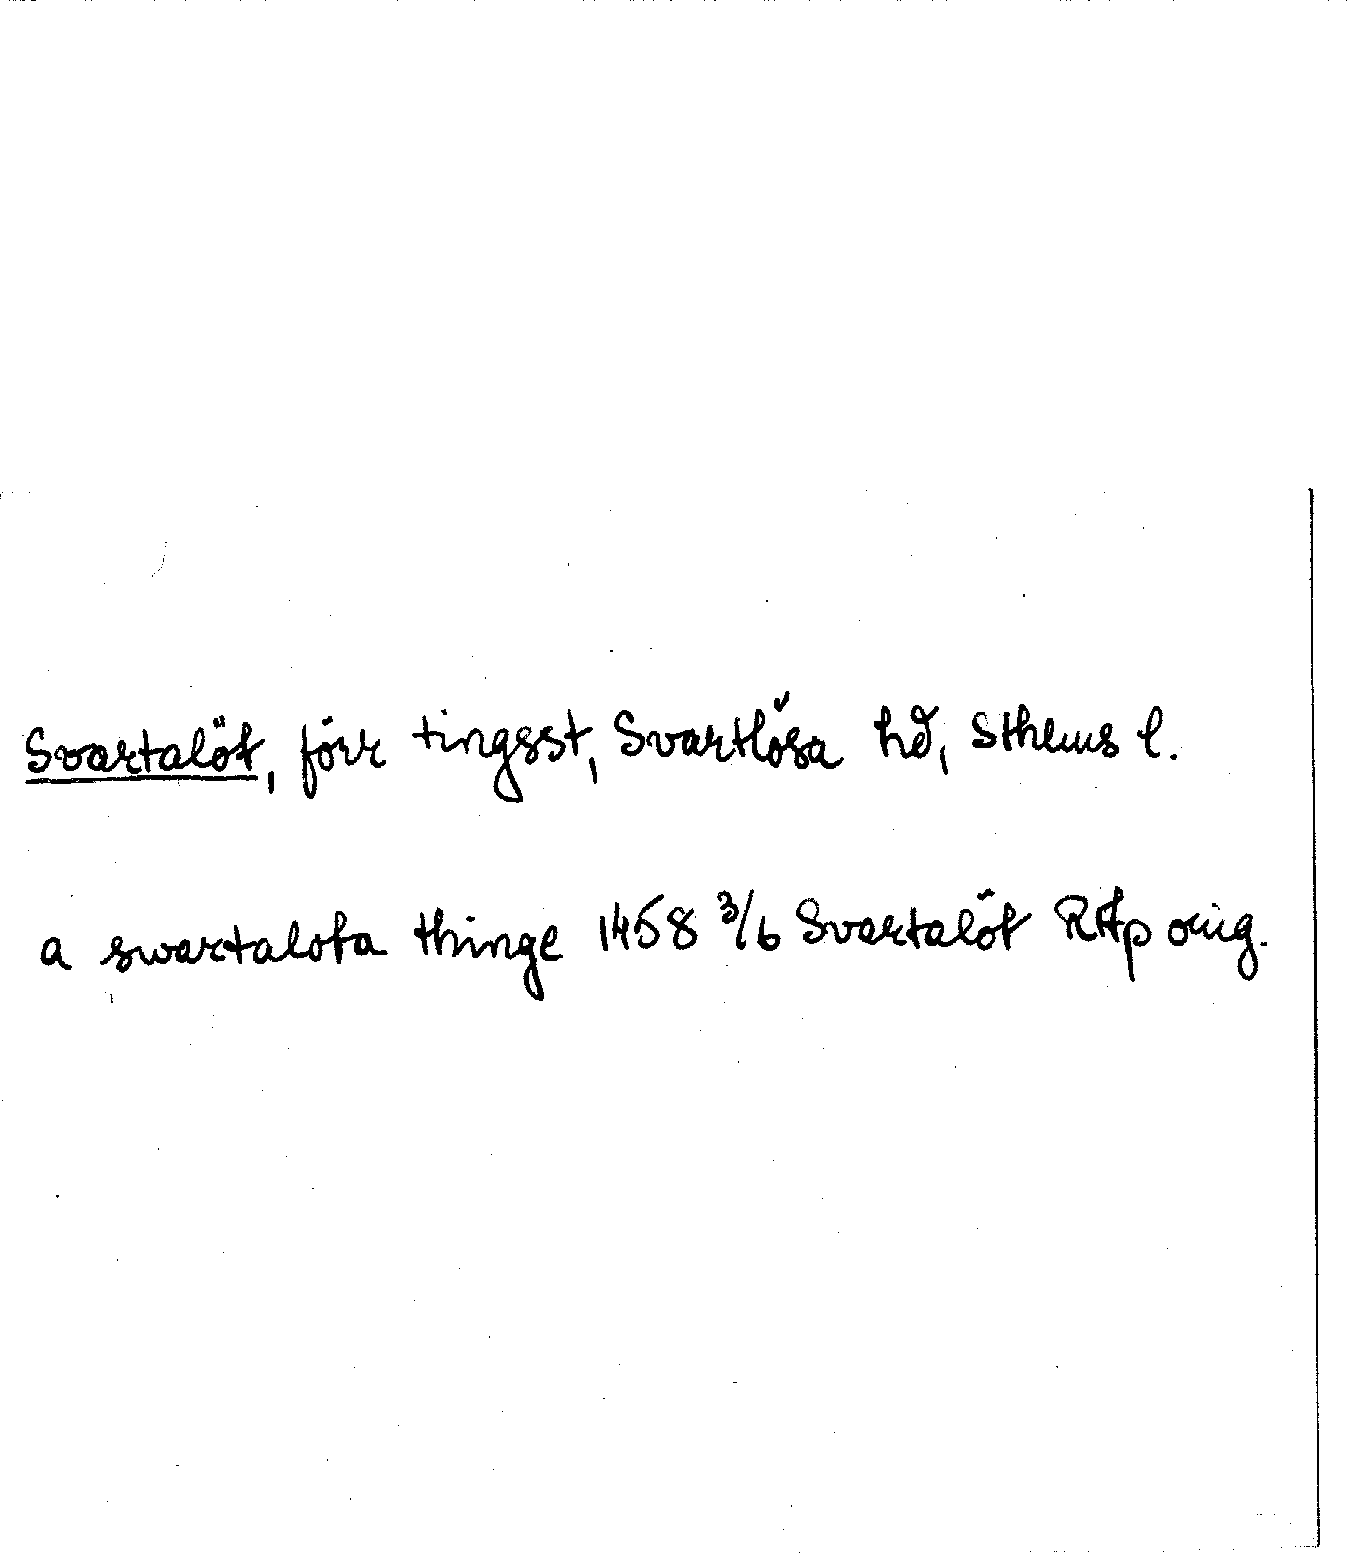 Svartalöt, förr tingsst, Svartlösa hd, Sthlms l.
a swartalota thinge 1458 3/6 Svartalöt RAp orig.